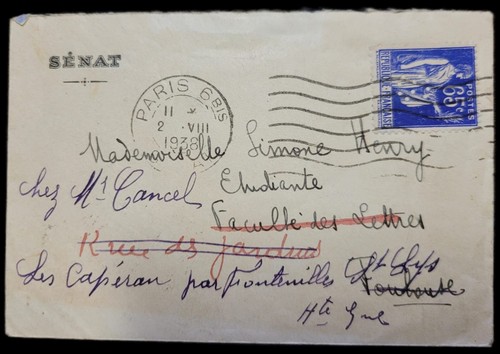 SÉNAT
PARIS 6 BIS
11 *
2 - VIII
1938
RÉPUBLIQUE FRANÇAISE
65c
POSTES
Mademoiselle Simone Henry
chez Mr Cancel
Etudiante
Faculté des Lettres
rue des jardins
Les Capéran par Fontenilles St Lys
Toulouse
Hte Gne